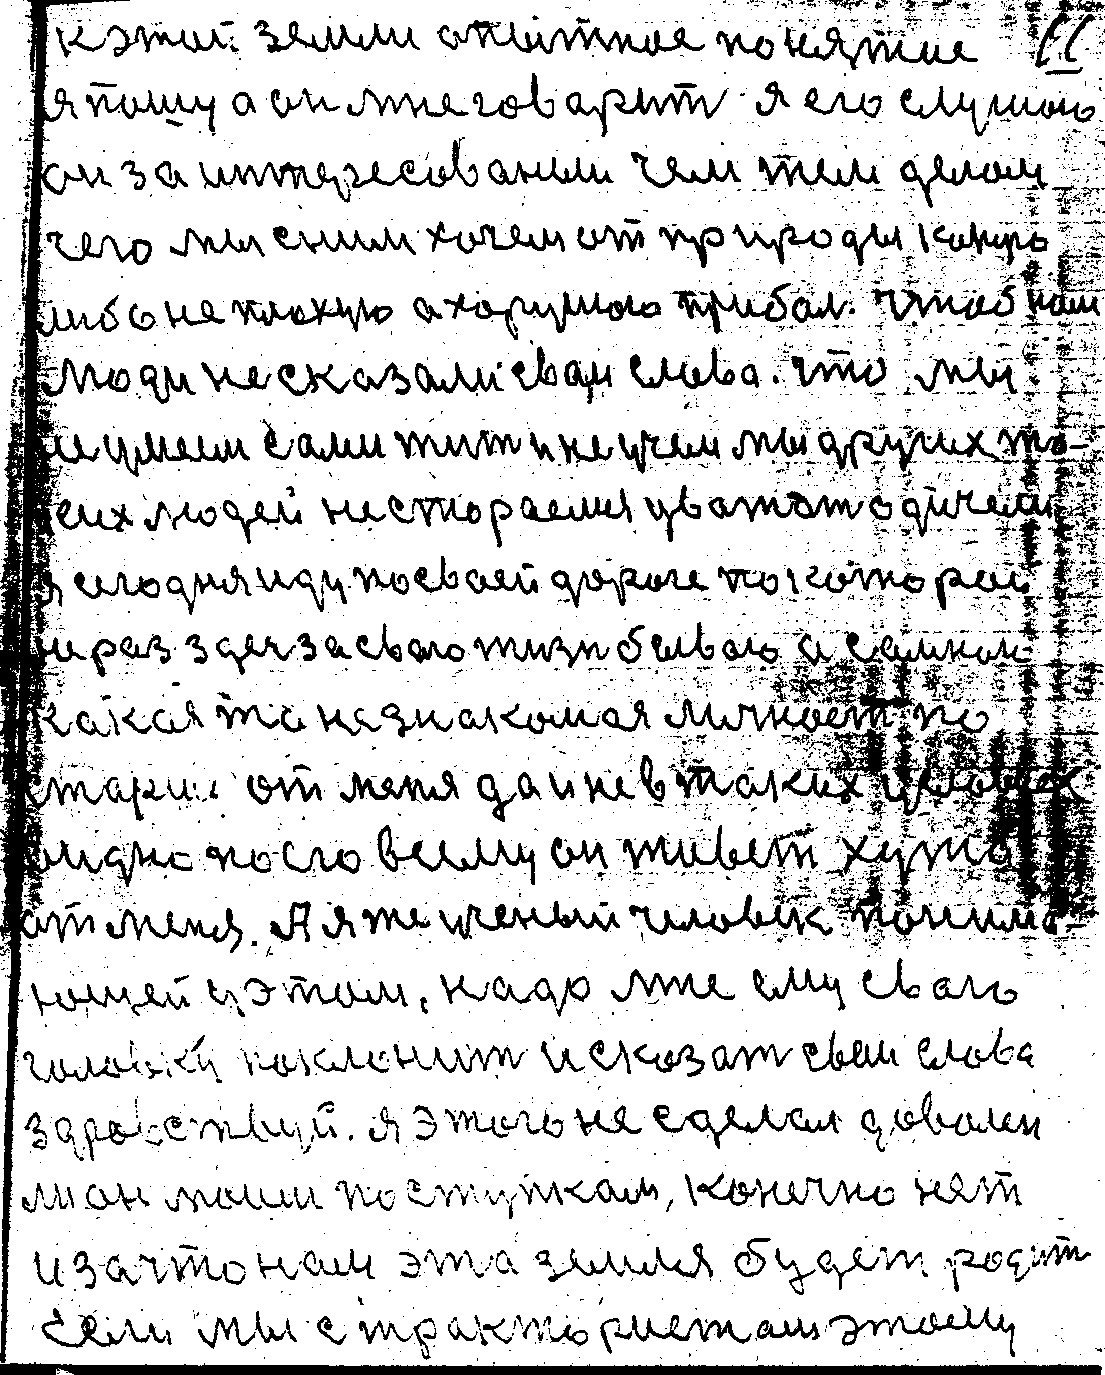 к этой земли опытное понятие 11
я пошу а он мне говарит я его слушою
он за интересованим чем тем делом
чего мы сним хочем от природы какую
либо не плохую а хорушою прибал. Чтоб нам
люди не сказали сваи слова. что мы
не умеем сами тит и не учем мы других то-
сих людей нестораемся уватат одичели
я сегодня иду посваей дороге по которой
не раз здес за сваю тизн бываю а самною
какая та назнакомая личност по
старше от меня да и нев таких условиех
видно по его всему он тивет хуто
от меня. А я те ученый человек понима-
ющей у этом, надо мне ему сваю
головку поклонит и сказат сваи слова
здравствуй. я этого не сделал довален
ли он моим поступкам, конечно нет
и за что нам эта земля будет родит
Если мы с трактористам этому